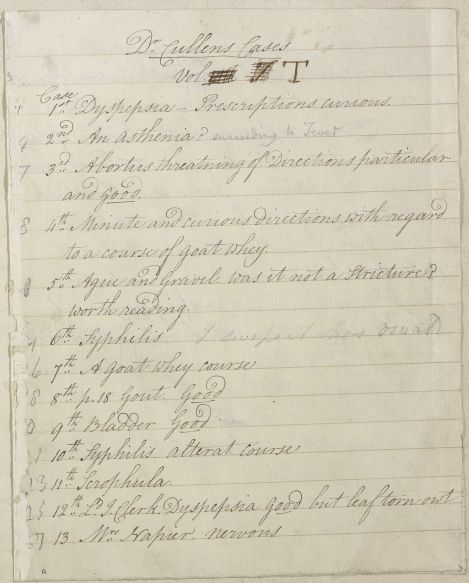 Dr. Cullens Cases
Vol. T
Case
1st Dyspepsia – Prescriptions curious.
4 2nd An asthenia? succeeding to Fever
7 3rd Abortus threatning of Directions particular
and Good.
8 4th Minute and curious directions with regard
to a course of goat whey.
8 5th Ague and Gravel. was it not a Stricture?
worth reading.
6th Syphilis I suspect
6 7th A goat whey course
8 8th p. 18 Gout. Good
9 9th Bladder Good
10th Syphilis. alterat. course
23 11th Scrophula.
25 12th Ld. J. Clerk. Dyspepsia good but leaf torn out
27 13 Mrs Napier. nervous
A